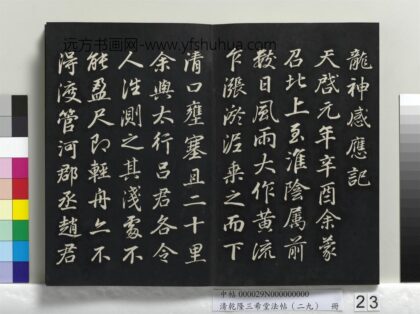 远方书画网-www.yfshuhua.com
龍神感應記
天啓元年辛酉余蒙
召北上至淮陰属前
數日風雨大作黄流
乍漲淤沼乘之而下
清口壅塞且二十里
余與太行吕君各令
人往測之其淺處不
能盈尺即輕舟亦不
得渡管河郡丞趙君
中帖 000029N000000000
清乾隆三希堂法帖(二九) 冊
23